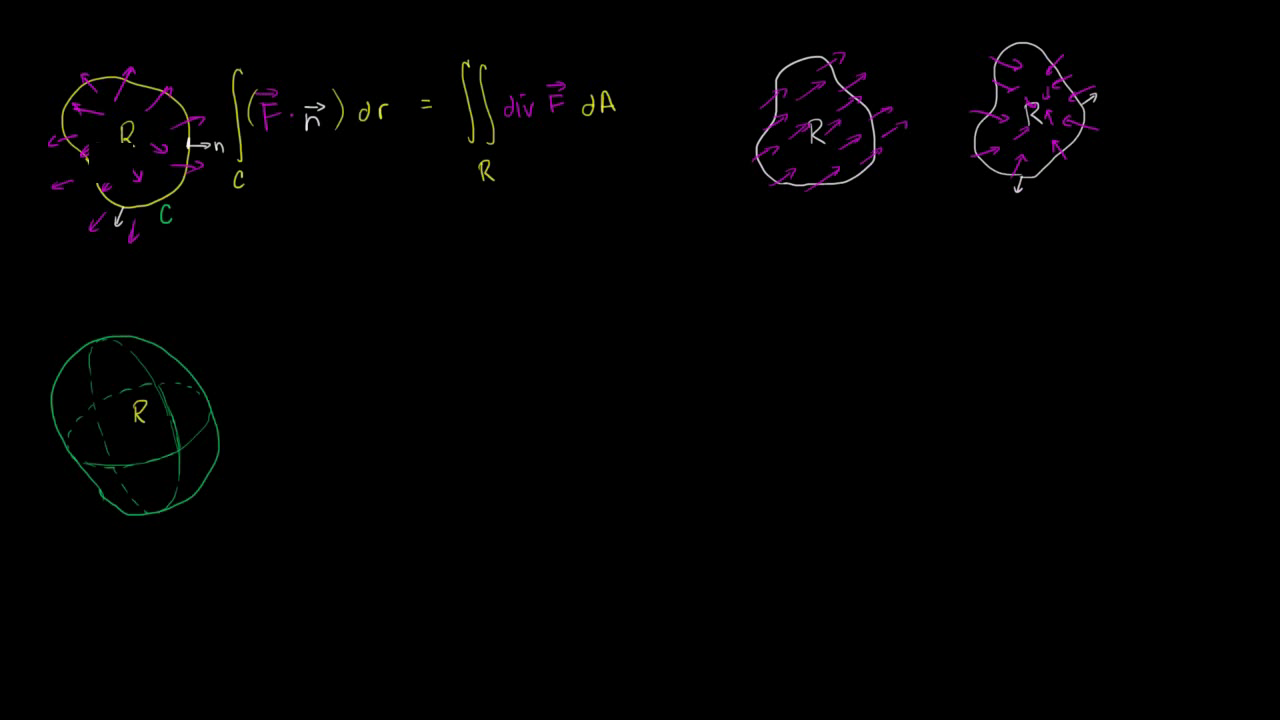 R n C
∫_C (F⃗ · n⃗) dr = ∬_R div F⃗ dA
R
R
R